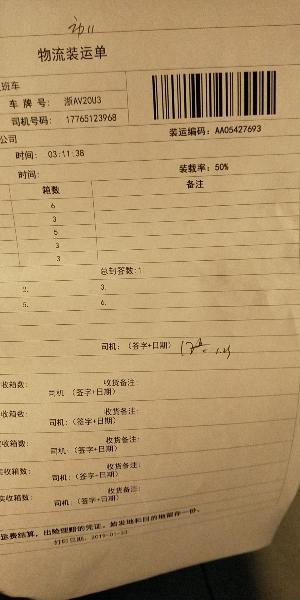 物流装运单
班车
车 牌 号: 浙AV20U3
司机号码: 17765123968
装运编码: AA05427693
公司
时间: 03:11:38
时间:
装载率: 50%
箱数 备注
6
3
5
3
3
总封签数:1
2. 3.
5. 6.
司机: (签字+日期)
收箱数: 收货备注:
司机: (签字+日期)
收箱数: 收货备注:
司机: (签字+日期)
收箱数: 收货备注:
司机: (签字+日期)
实收箱数: 收货备注:
司机: (签字+日期)
实收箱数: 收货备注:
司机: (签字+日期)
运费结算, 出险理赔的凭证, 始发地和目的地留存一份。
打印日期: 2019-01-23